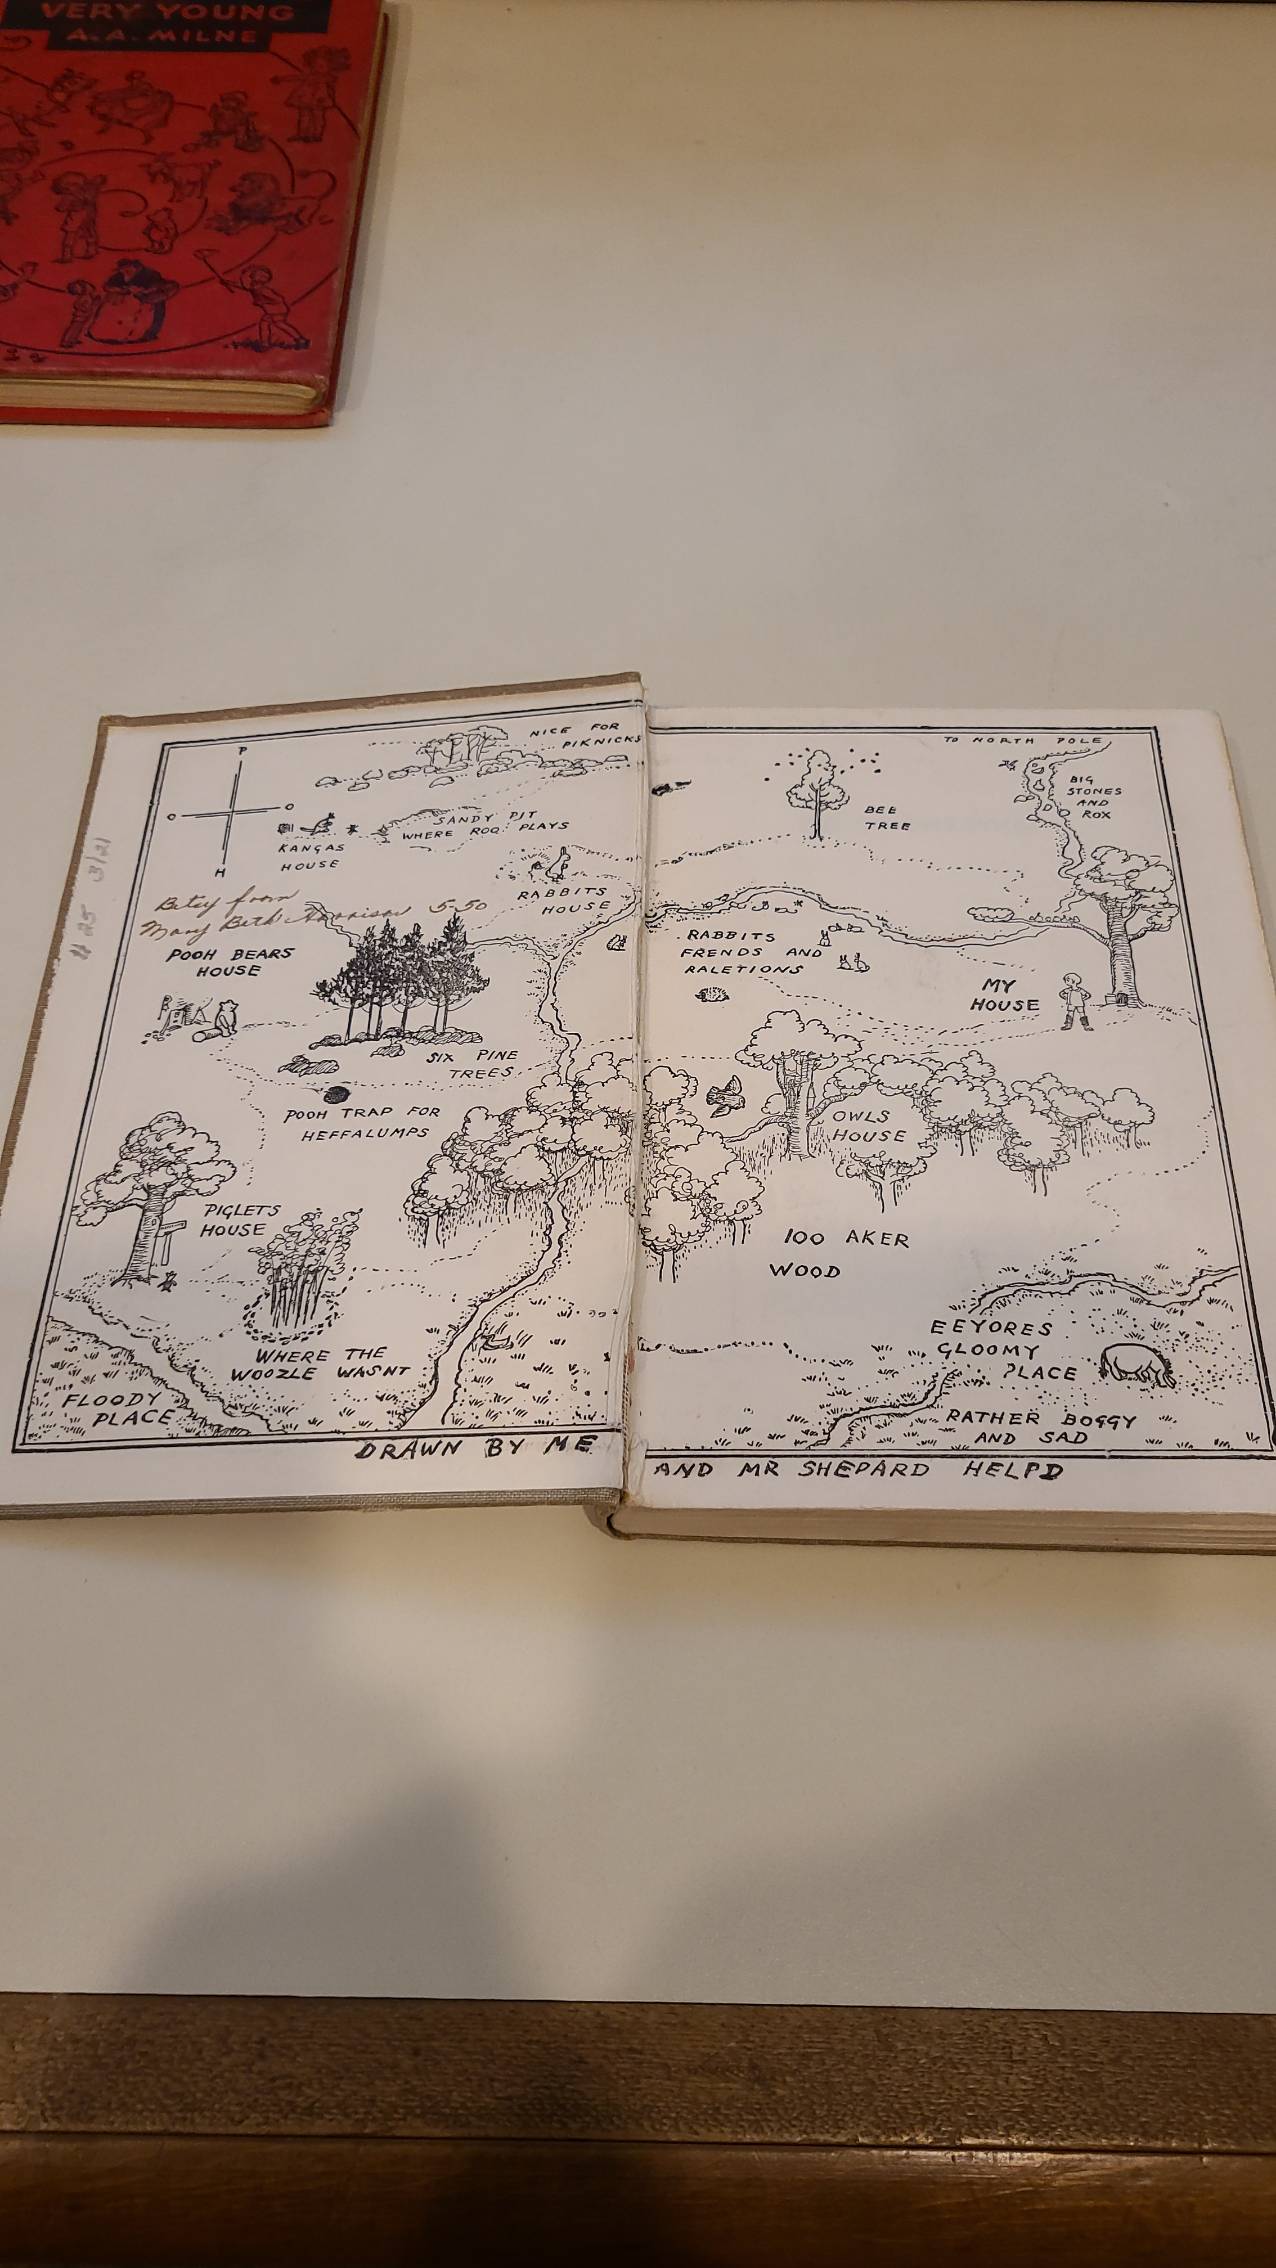 VERY YOUNG
A. A. MILNE
NICE FOR
PIKNICKS
TO NORTH POLE
P
O
O
H
BIG
STONES
AND
ROX
SANDY PIT
WHERE ROO PLAYS
BEE
TREE
KANGAS
HOUSE
RABBITS
HOUSE
Betsy from
Mary Beth 5-50
3/21
RABBITS
FRENDS AND
RALETIONS
POOH BEARS
HOUSE
MY
HOUSE
SIX PINE
TREES
POOH TRAP FOR
HEFFALUMPS
OWLS
HOUSE
PIGLETS
HOUSE
100 AKER
WOOD
WHERE THE
WOOZLE WASNT
EEYORES
GLOOMY
PLACE
FLOODY
PLACE
RATHER BOGGY
AND SAD
DRAWN BY ME
AND MR SHEPARD HELPD